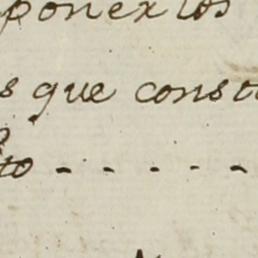 ponex los
s que const
to - - - - -